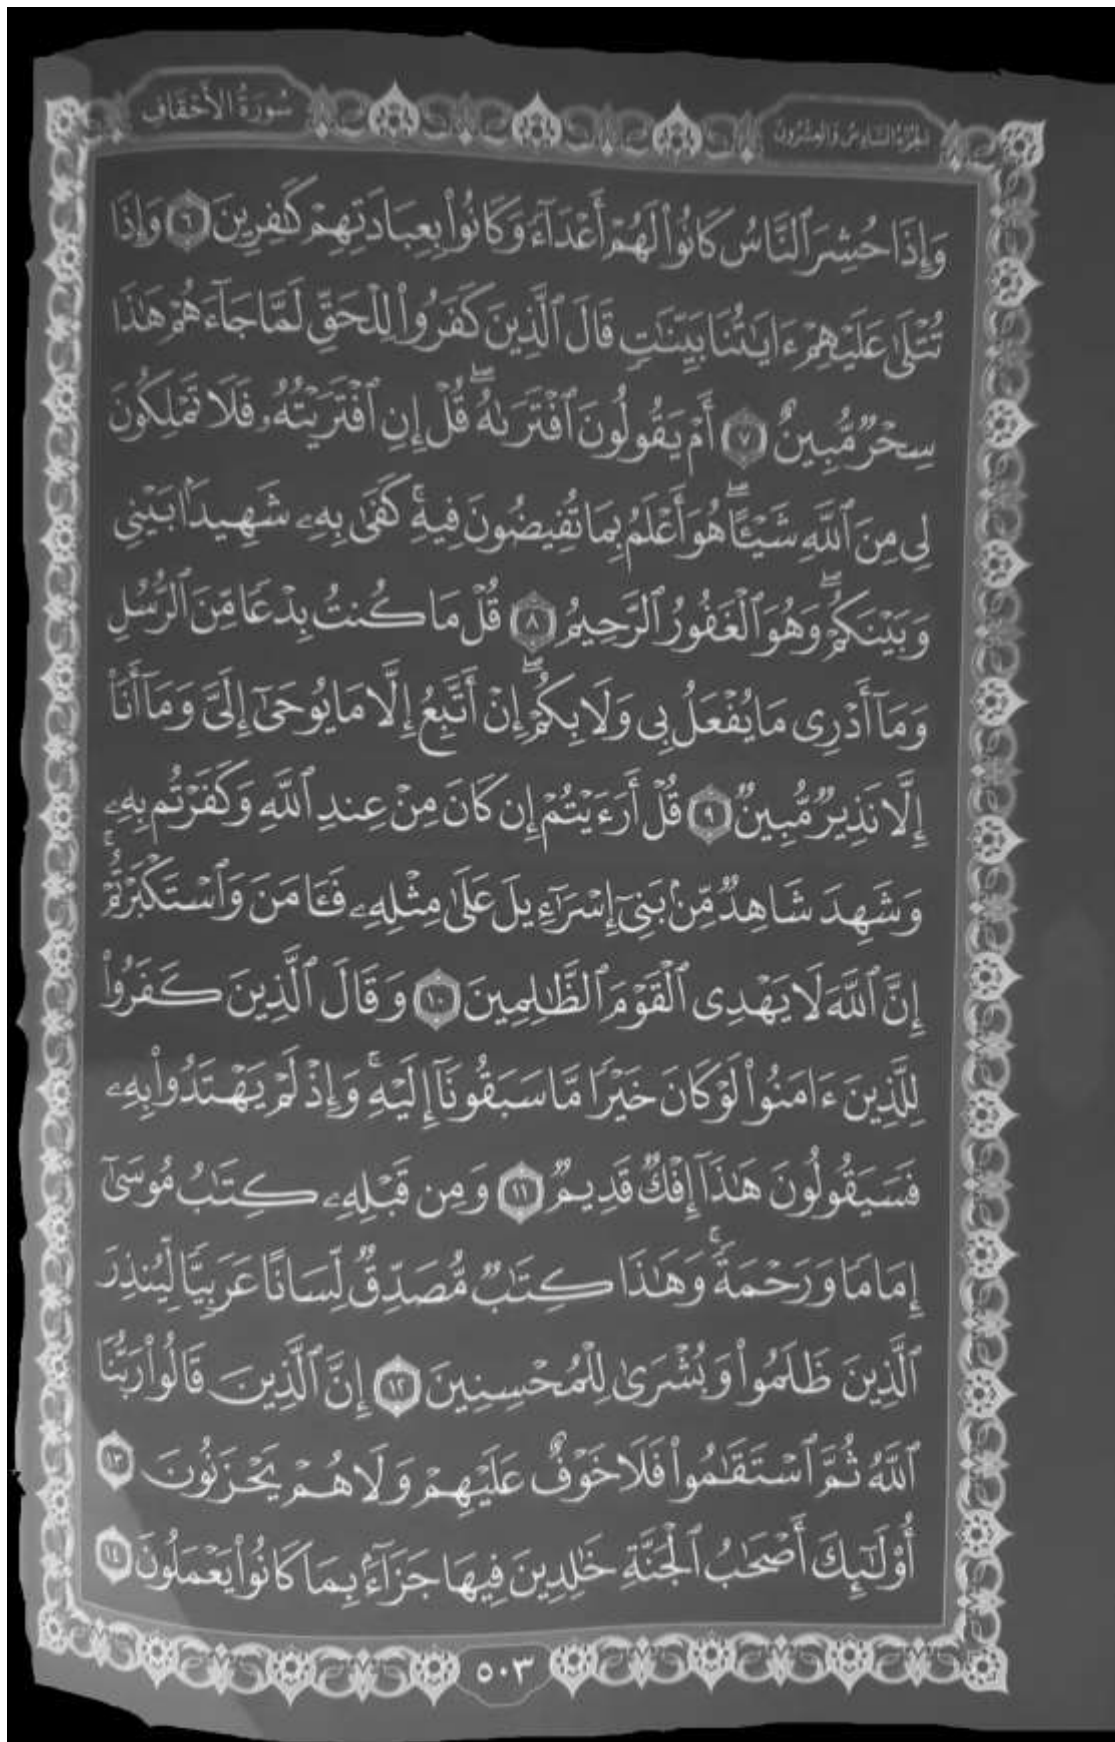 الجزء السادس والعشرون
سُورَةُ الأَحْقَافِ
وَإِذَا حُشِرَ ٱلنَّاسُ كَانُوا۟ لَهُمْ أَعْدَآءً وَكَانُوا۟ بِعِبَادَتِهِمْ كَٰفِرِينَ ٦ وَإِذَا
تُتْلَىٰ عَلَيْهِمْ ءَايَٰتُنَا بَيِّنَٰتٍ قَالَ ٱلَّذِينَ كَفَرُوا۟ لِلْحَقِّ لَمَّا جَآءَهُمْ هَٰذَا
سِحْرٌ مُّبِينٌ ٧ أَمْ يَقُولُونَ ٱفْتَرَىٰهُ ۖ قُلْ إِنِ ٱفْتَرَيْتُهُۥ فَلَا تَمْلِكُونَ
لِى مِنَ ٱللَّهِ شَيْـًٔا ۖ هُوَ أَعْلَمُ بِمَا تُفِيضُونَ فِيهِ ۚ كَفَىٰ بِهِۦ شَهِيدًۢا بَيْنِى
وَبَيْنَكُمْ ۖ وَهُوَ ٱلْغَفُورُ ٱلرَّحِيمُ ٨ قُلْ مَا كُنتُ بِدْعًا مِّنَ ٱلرُّسُلِ
وَمَآ أَدْرِى مَا يُفْعَلُ بِى وَلَا بِكُمْ ۖ إِنْ أَتَّبِعُ إِلَّا مَا يُوحَىٰٓ إِلَىَّ وَمَآ أَنَا۠
إِلَّا نَذِيرٌ مُّبِينٌ ٩ قُلْ أَرَءَيْتُمْ إِن كَانَ مِنْ عِندِ ٱللَّهِ وَكَفَرْتُم بِهِۦ
وَشَهِدَ شَاهِدٌ مِّنۢ بَنِىٓ إِسْرَٰٓءِيلَ عَلَىٰ مِثْلِهِۦ فَـَٔامَنَ وَٱسْتَكْبَرْتُمْ ۚ
إِنَّ ٱللَّهَ لَا يَهْدِى ٱلْقَوْمَ ٱلظَّٰلِمِينَ ١٠ وَقَالَ ٱلَّذِينَ كَفَرُوا۟
لِلَّذِينَ ءَامَنُوا۟ لَوْ كَانَ خَيْرًا مَّا سَبَقُونَآ إِلَيْهِ ۚ وَإِذْ لَمْ يَهْتَدُوا۟ بِهِۦ
فَسَيَقُولُونَ هَٰذَآ إِفْكٌ قَدِيمٌ ١١ وَمِن قَبْلِهِۦ كِتَٰبُ مُوسَىٰٓ
إِمَامًا وَرَحْمَةً ۚ وَهَٰذَا كِتَٰبٌ مُّصَدِّقٌ لِّسَانًا عَرَبِيًّا لِّيُنذِرَ
ٱلَّذِينَ ظَلَمُوا۟ وَبُشْرَىٰ لِلْمُحْسِنِينَ ١٢ إِنَّ ٱلَّذِينَ قَالُوا۟ رَبُّنَا
ٱللَّهُ ثُمَّ ٱسْتَقَٰمُوا۟ فَلَا خَوْفٌ عَلَيْهِمْ وَلَا هُمْ يَحْزَنُونَ ١٣
أُو۟لَٰٓئِكَ أَصْحَٰبُ ٱلْجَنَّةِ خَٰلِدِينَ فِيهَا جَزَآءًۢ بِمَا كَانُوا۟ يَعْمَلُونَ ١٤
٥٠٣